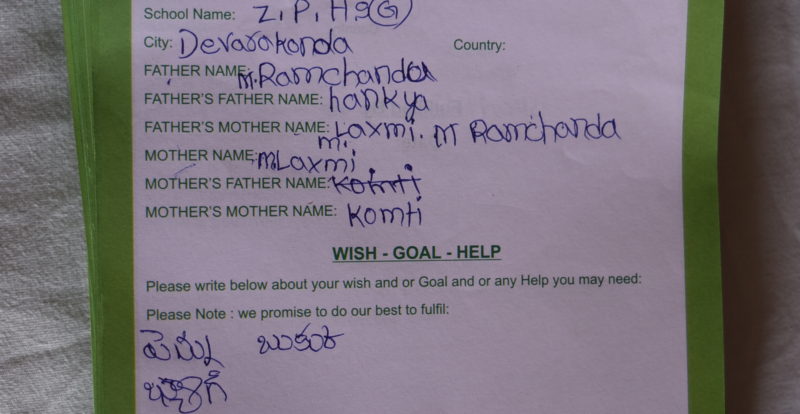 School Name: Z.P.HS(G)
City: Devarakonda Country:
FATHER NAME: M.Ramchanda
FATHER'S FATHER NAME: hankya
FATHER'S MOTHER NAME: Laxmi. M Ramchanda
m.
MOTHER NAME: M.Laxmi
MOTHER'S FATHER NAME: Komti
MOTHER'S MOTHER NAME: Komti
WISH - GOAL - HELP
Please write below about your wish and or Goal and or any Help you may need:
Please Note : we promise to do our best to fulfil:
పెన్ను